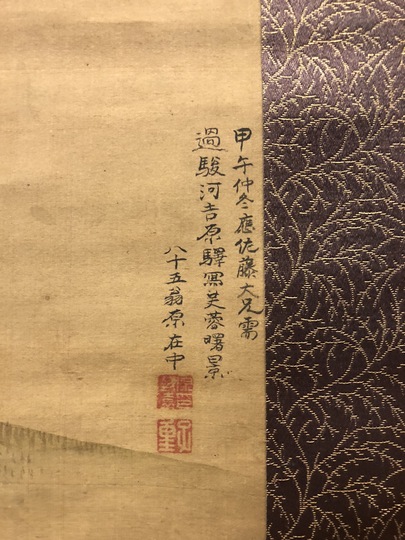 甲午仲冬應佐藤大兄需
過駿河吉原驛寫芙蓉曙景
八十五翁原在中